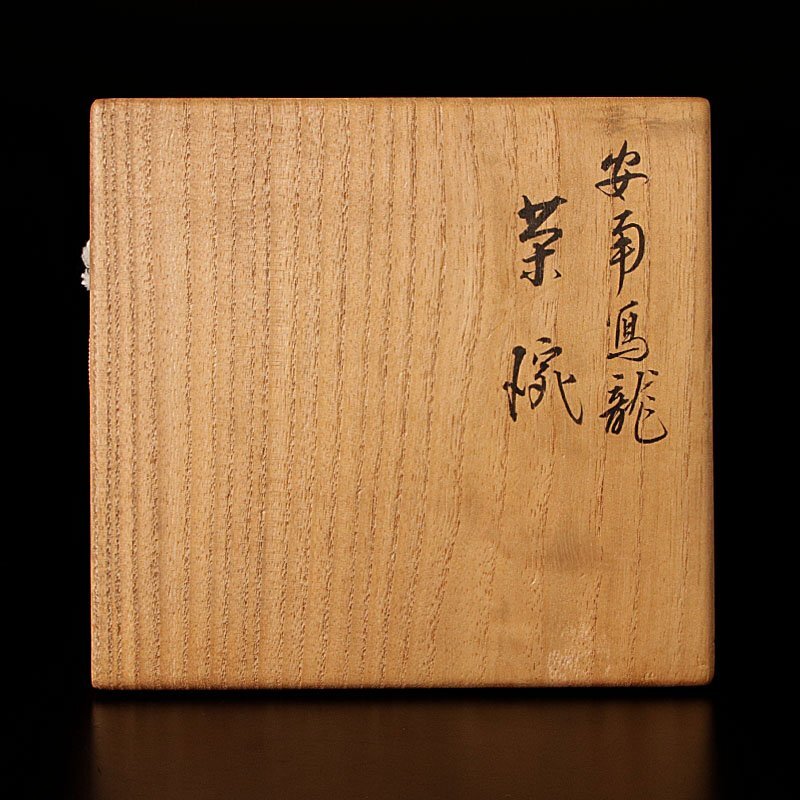 安南寫龍
茶碗